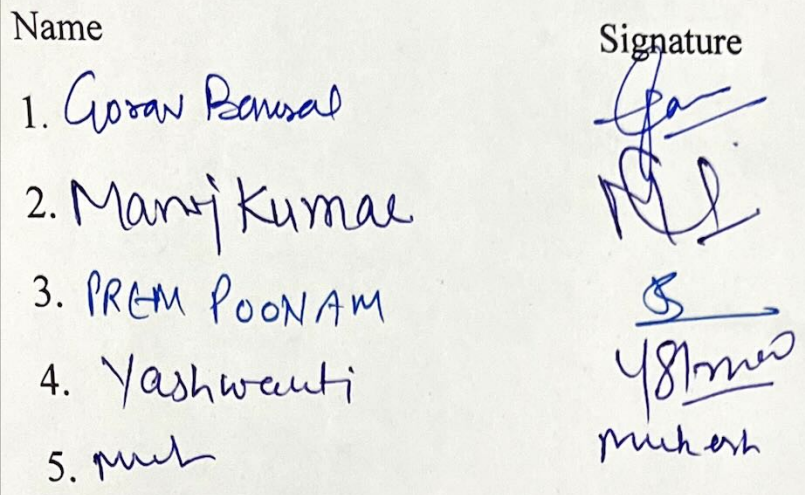 Name Signature
1. Gorav Bansal
2. Manoj Kumar
3. PREM POONAM
4. Yashwanti
5. mukesh